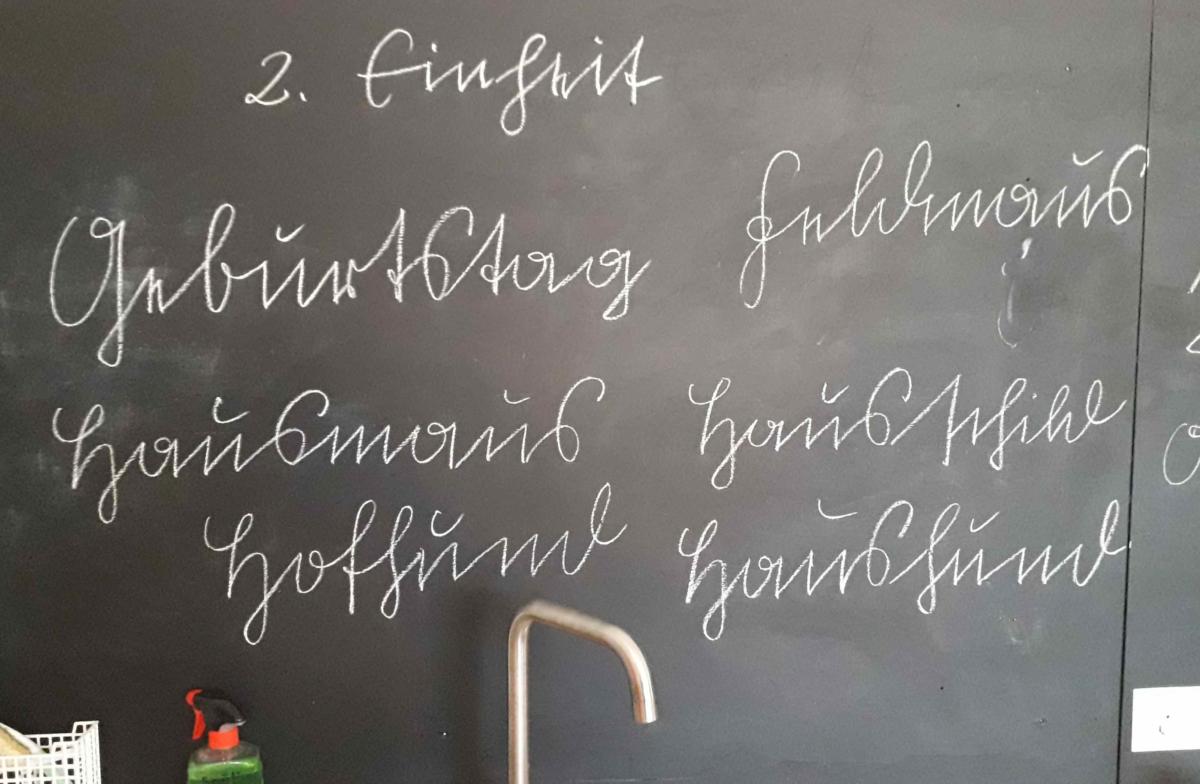 2. Einheit
Geburtstag Feldmaus
Hausmaus Hausschild
Hofhund Haushund